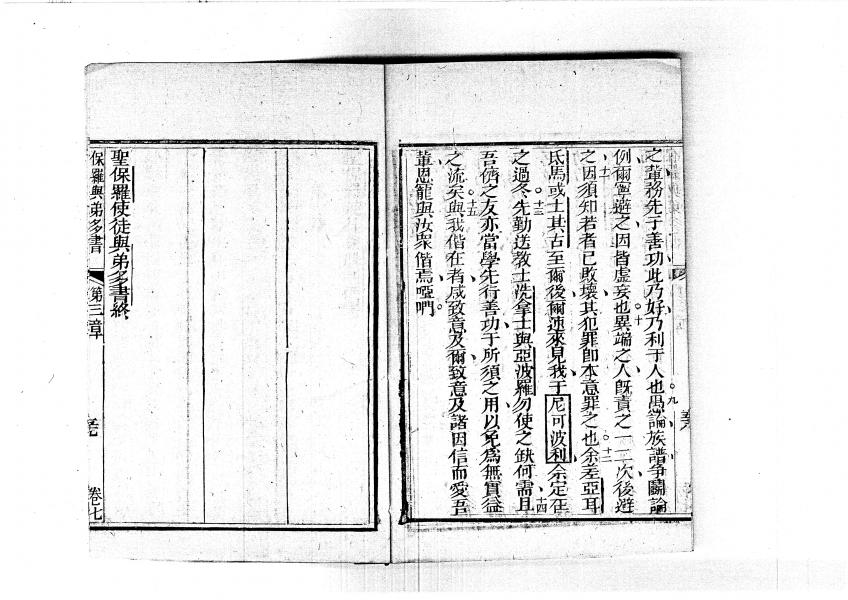 之輩務先于善功此乃好乃利于人也九愚論族譜爭鬭論
例爾寧避之因皆虛妄也十異端之人旣責之一二次後避
之十一因須知若者已敗壞其犯罪卽本意罪之也十二余差亞耳
氐馬或士其古至爾後爾速來見我于尼可波利余定在
之過冬十三先勤送敎士洗拿士與亞波羅勿使之缺何需且十四
吾儕之友亦當學先行善功于所須之用以免爲無實益
之流矣十五與我偕在者咸致意及爾致意及諸因信而愛吾
輩恩寵與汝衆偕焉啞們
聖保羅使徒與弟多書終
保羅與弟多書 第三章 卷七